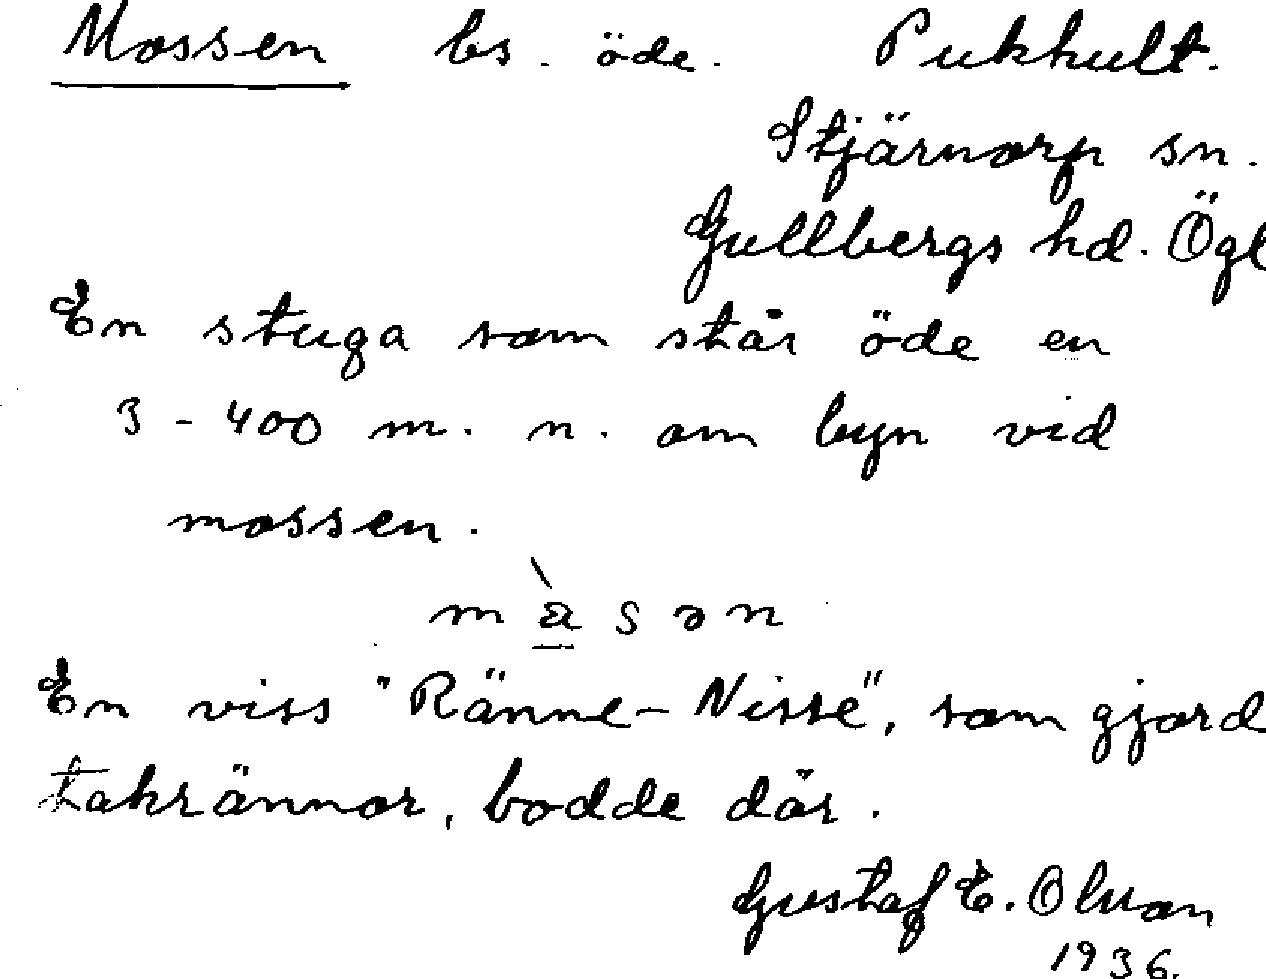 Mossen bs. öde. Pukhult.
Stjärnorp sn.
Gullbergs hd. Ögl
En stuga som står öde en
3-400 m. n. om byn vid
mossen.
m à s ə n
En viss "Ränne-Nisse", som gjord
takrännor, bodde där.
Gustaf E. Olson
1936.